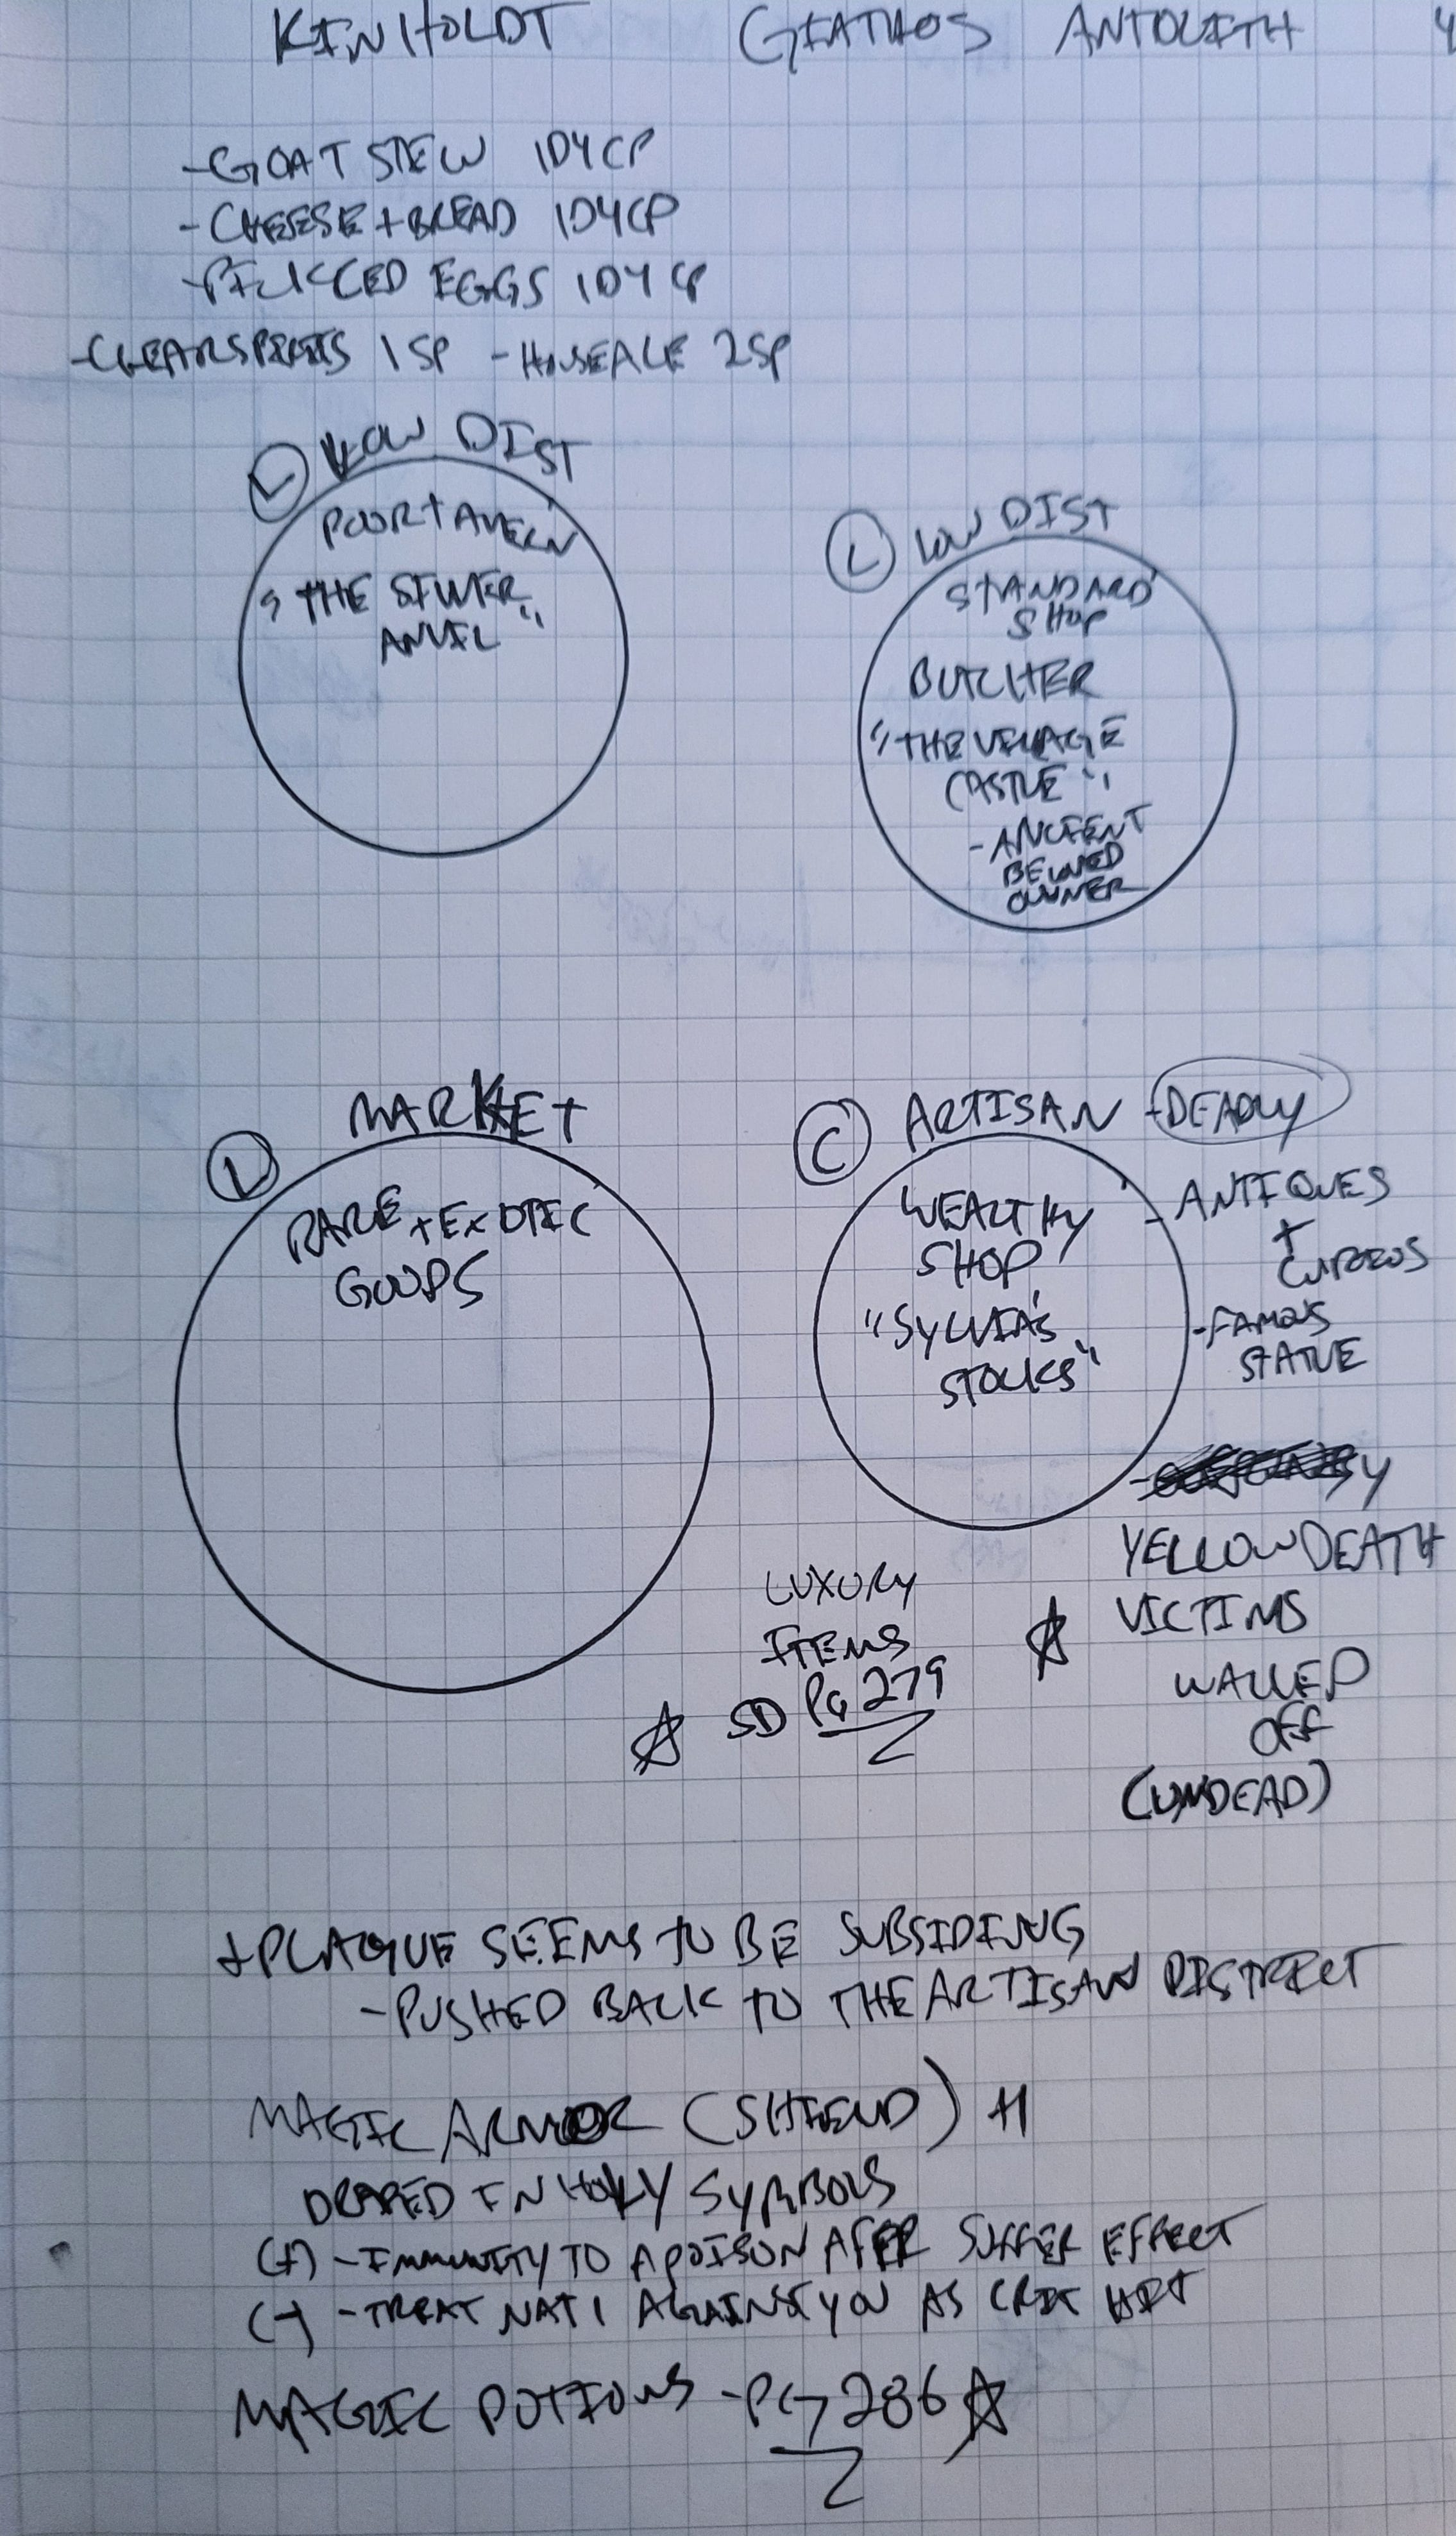 KINHOLDT GIATHOS ANTOLITH 4
-GOAT STEW 1D4CP
-CHEESE+BREAD 1D4CP
-PICKLED EGGS 1D4CP
-CLEAR SPIRITS 1SP -HOUSE ALE 2SP
L LOW DIST
POOR TAVERN
"THE SILVER
ANVIL"
L LOW DIST
STANDARD
SHOP
BUTCHER
"THE VILLAGE
CASTLE"
-ANCIENT
BELOVED
OWNER
L MARKET
RARE+EXOTIC
GOODS
C ARTISAN -DEADLY
WEALTHY
SHOP
"SYLVIA'S
STOCKS"
-ANTIQUES
+
CURIOS
-FAMOUS
STATUE
YELLOW DEATH
VICTIMS
WALLED
OFF
(UNDEAD)
LUXURY
ITEMS
SD PG 279
+PLAGUE SEEMS TO BE SUBSIDING
-PUSHED BACK TO THE ARTISAN DISTRICT
MAGIC ARMOR (SHIELD) +1
DRAPED IN HOLY SYMBOLS
(+) -IMMUNITY TO A POISON AFER SUFFER EFFECT
(-) -TREAT NAT 1 AGAINST YOU AS CRIT HIT
MAGIC POTIONS -PG 286